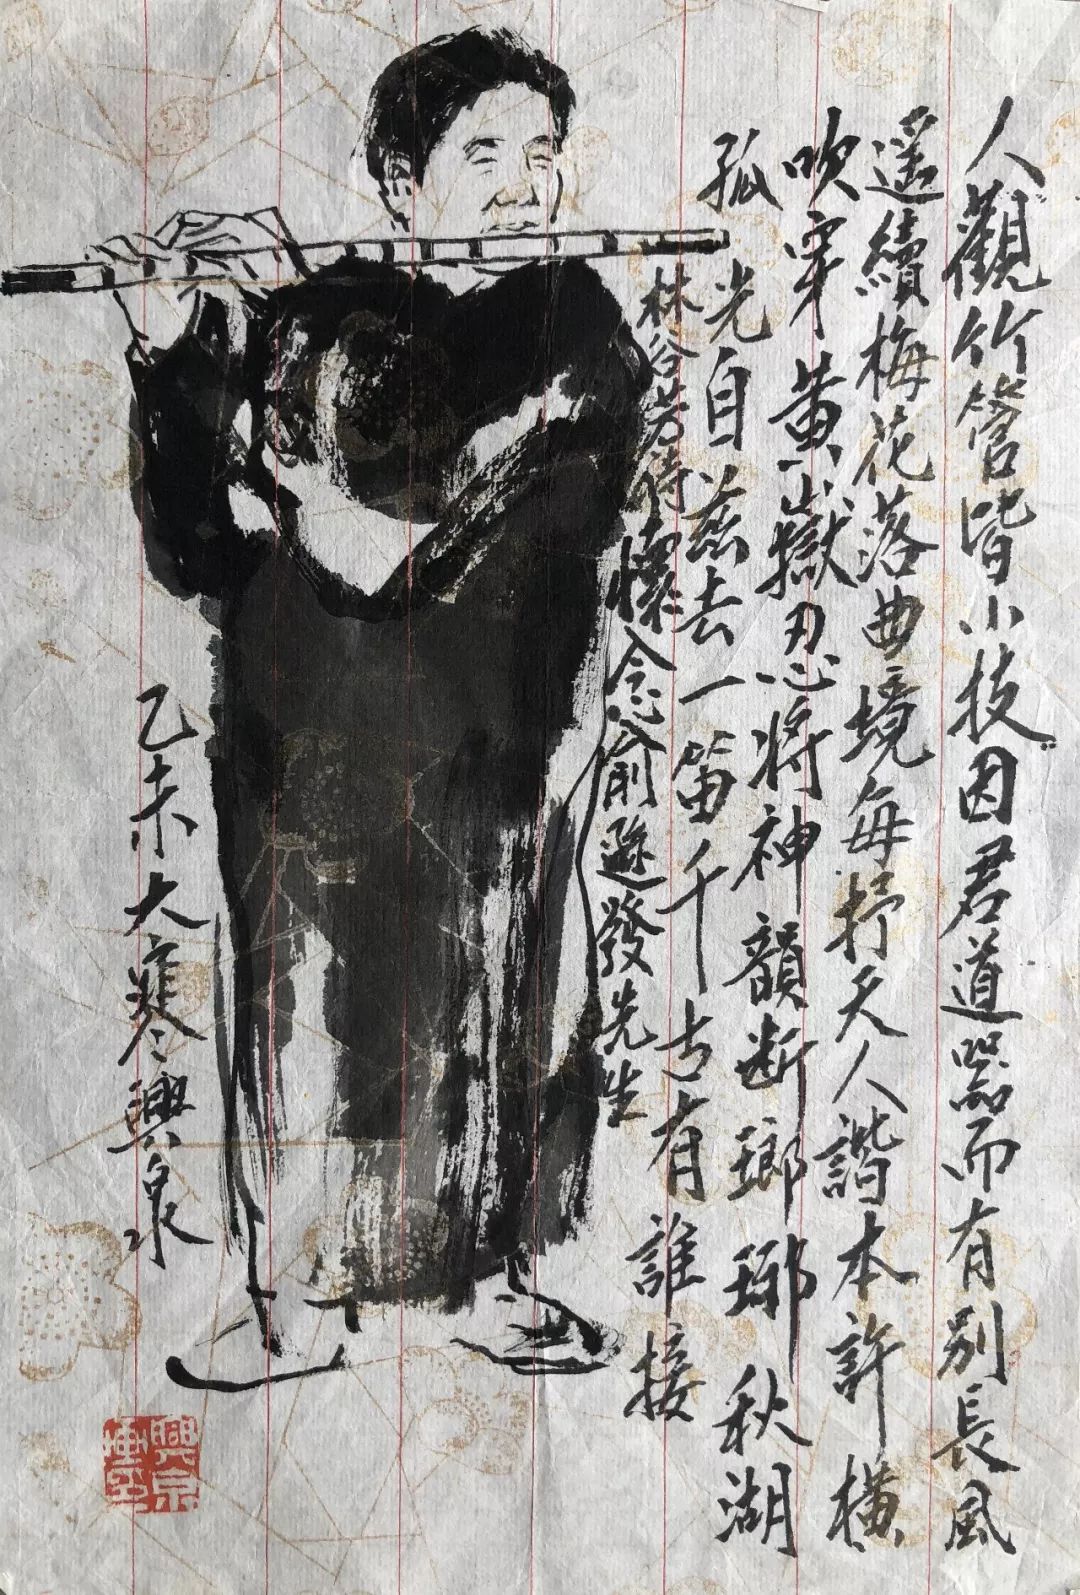 人觀竹管皆小技因君道器而有别長風
遥續梅花落曲境每抒天人諧本許橫
吹穿黄嶽忍將神韻断瑯琊秋湖
孤光自兹去一笛千古有誰接
林谷芳詩懷念俞遜發先生
乙未大寒興泉水